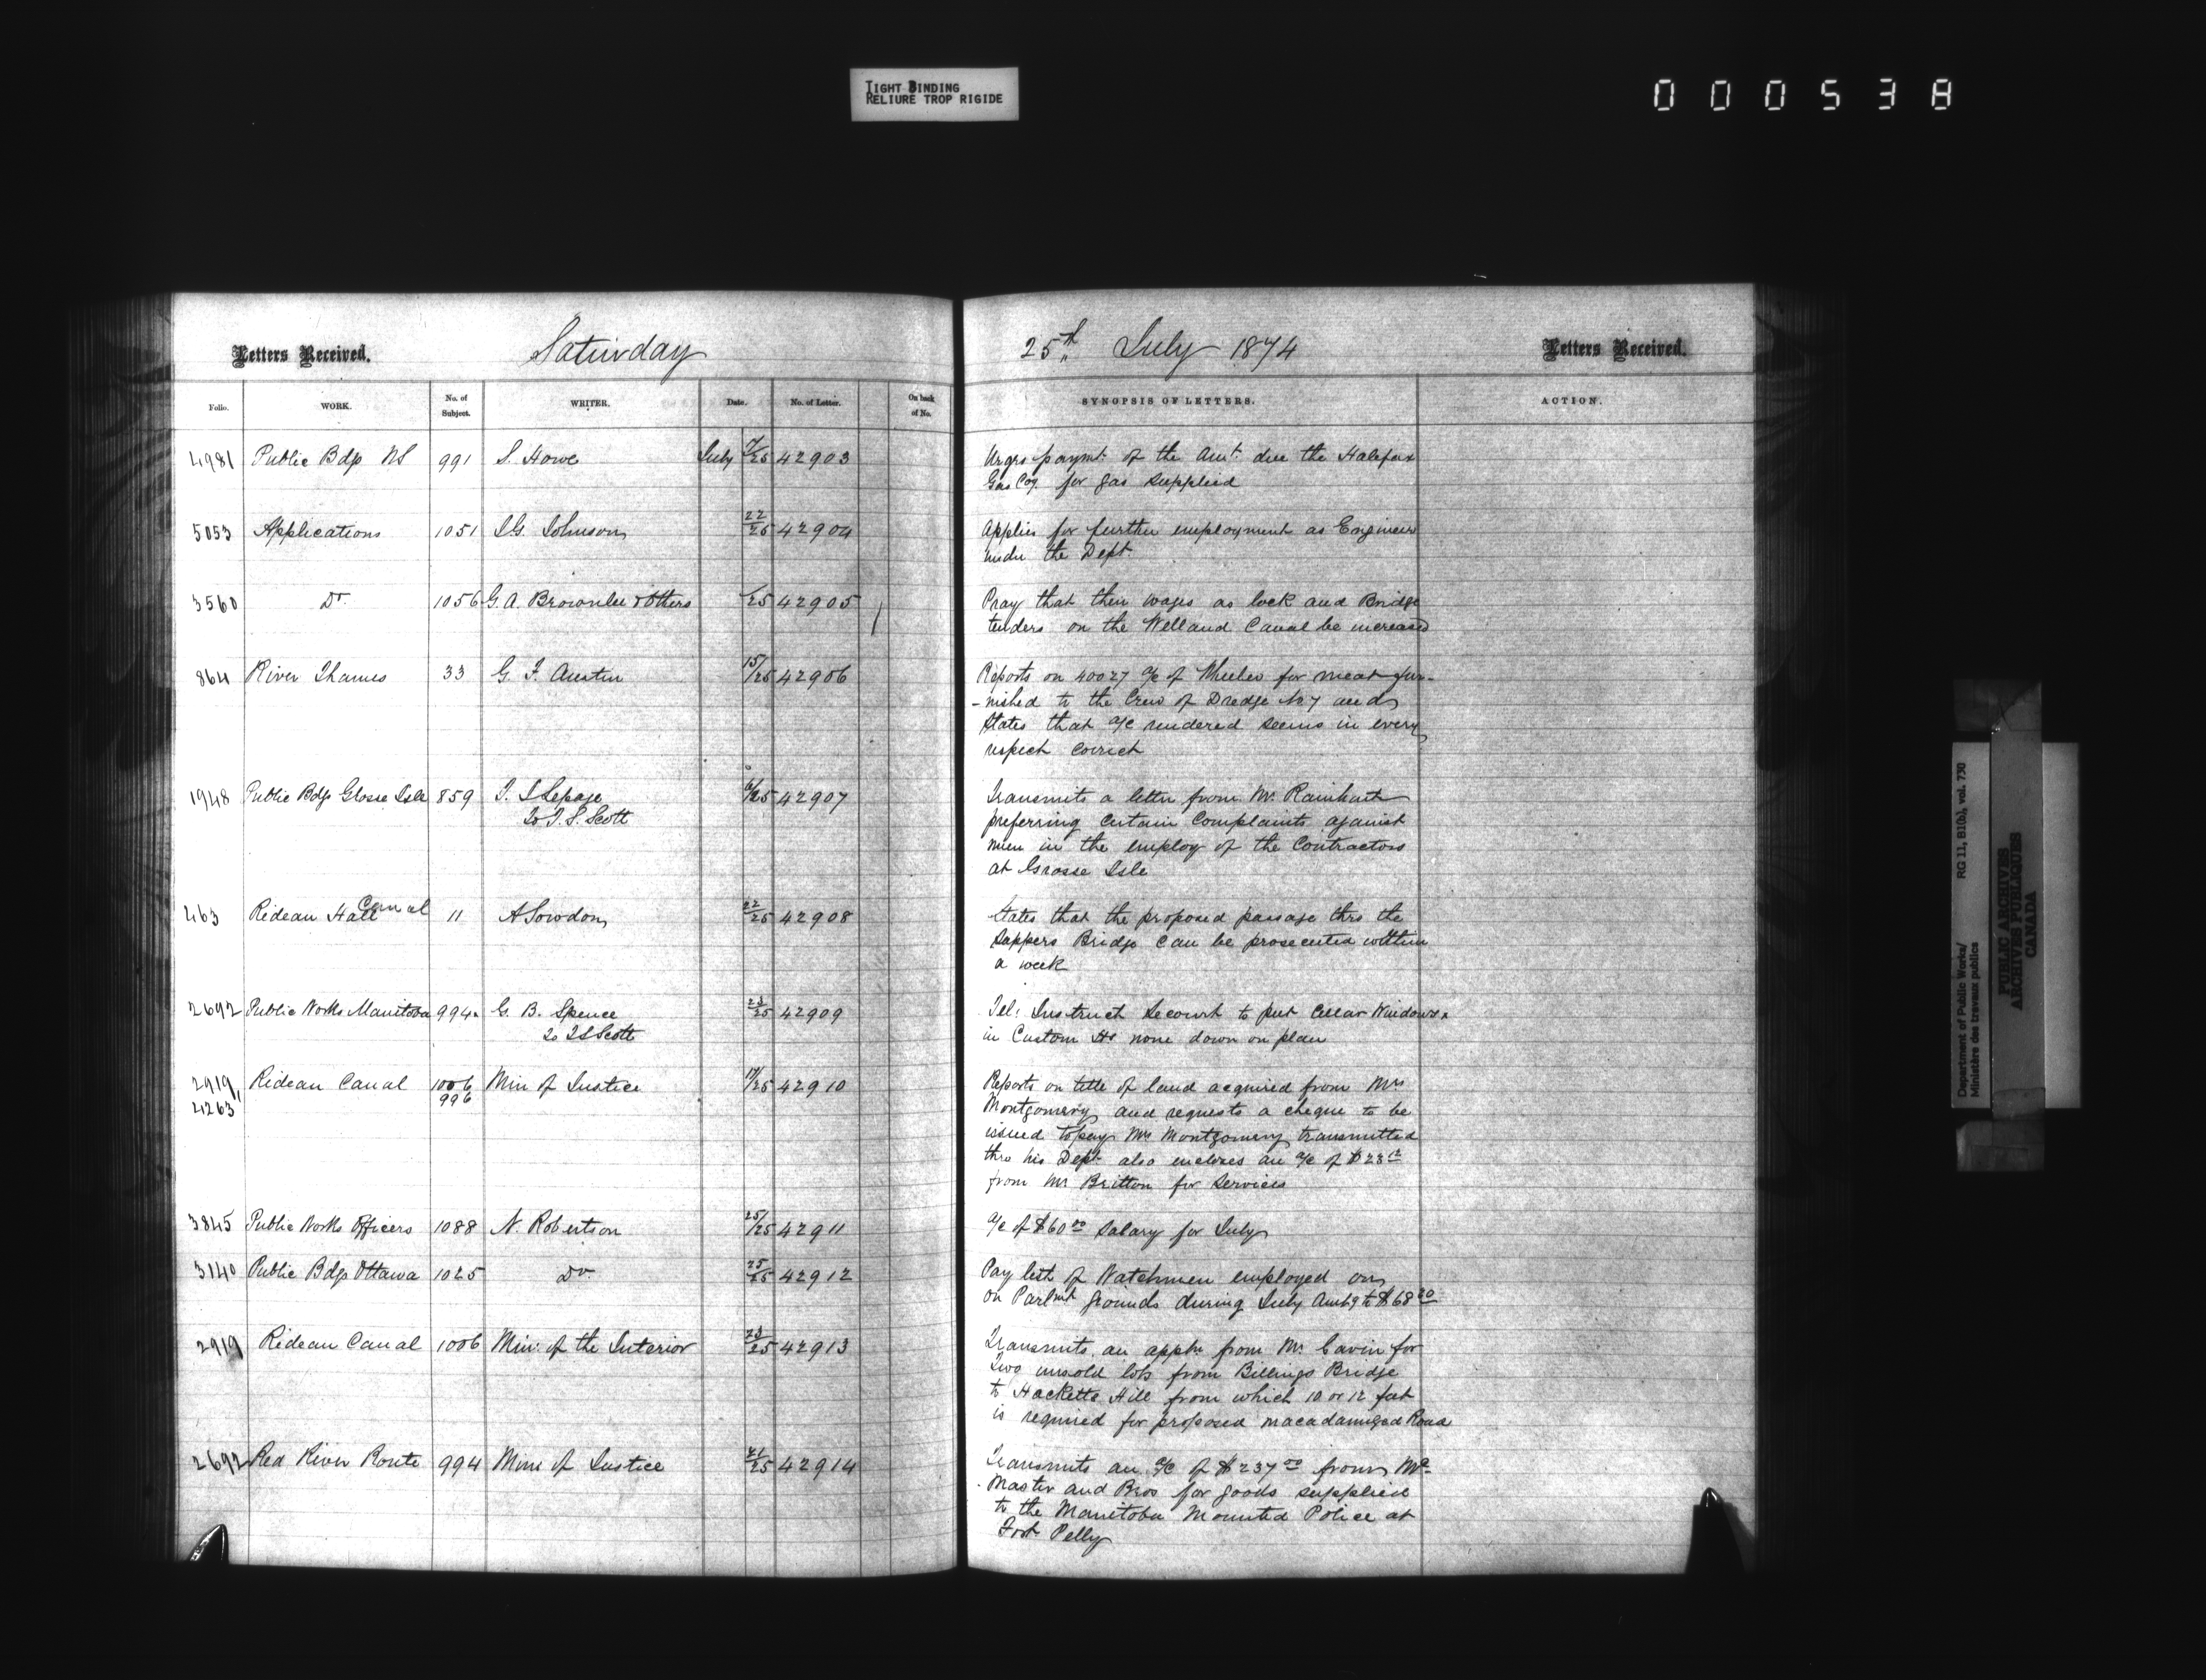 TIGHT BINDING
RELIURE TROP RIGIDE
000538
Letters Received.
Saturday
25th July 1874
Letters Received.
Folio. WORK. No. of Subject. WRITER. Date. No. of Letter. On back of No.
SYNOPSIS OF LETTERS. ACTION.
4981 Public Bdgs NS 991 S. Howe July 7/25 42903
Urges paymt. of the Amt. due the Halifax
Gas Coy for gas supplied
5053 Applications 1051 J.G. Johnson 22/25 42904
Applies for further employment as Engineer
under the Dept.
3560 Do. 1056 G.A. Brownlee & Others /25 42905
Pray that their wages as lock and Bridge
tenders on the Welland Canal be increased
864 River Thames 33 G. F. Austin 15/25 42906
Reports on 40027 a/c of Wheeler for meat fur-
-nished to the Crew of Dredge No 7 and
States that a/c rendered seems in every
respect correct
1948 Public Bdgs Glosse Isle 859 T. S Lepage 42907
To T. S. Scott
Transmits a letter from Mr. Rainhart
preferring certain complaints against
men in the employ of the Contractors
at Grosse Isle
463 Rideau Hall Canal 11 A Sowdon 22/25 42908
States that the proposed passage thro the
Sappers Bridge can be prosecuted within
a week
2692 Public Works Manitoba 994 G. B. Spence 23/25 42909
To T S Scott
Tel: Instruct Lecourt to put Cellar Windows
in Custom Hs none down on plan
2919, Rideau Canal 1006 Min of Justice 17/25 42910
4263 996
Reports on title of land acquired from Mrs
Montgomery and requests a cheque to be
issued to pay Mrs Montgomery transmitted
thro his Dept also encloses an a/c of $23 12
from Mr Britton for Services
3845 Public Works Officers 1088 N. Robertson 25/25 42911
a/c of $60 00 Salary for July
3140 Public Bdgs Ottawa 1025 Do. 25/25 42912
Pay list of Watchmen employed on
on Parlmt grounds during July Amtg to $68 20
2919 Rideau Canal 1006 Min: of the Interior 23/25 42913
Transmits an appln from Mr. Cavin for
Two unsold lots from Billings Bridge
to Hacketts Hill from which 10 or 12 feet
is required for proposed macadamized Road
2692 Red River Route 994 Minr of Justice 21/25 42914
Transmits an a/c of $237 00 from Mc-
Master and Bros for goods supplied
to the Manitoba Mounted Police at
Fort Pelly
Department of Public Works/
Ministère des travaux publics
RG 11, B1(b), vol. 730
PUBLIC ARCHIVES
ARCHIVES PUBLIQUES
CANADA